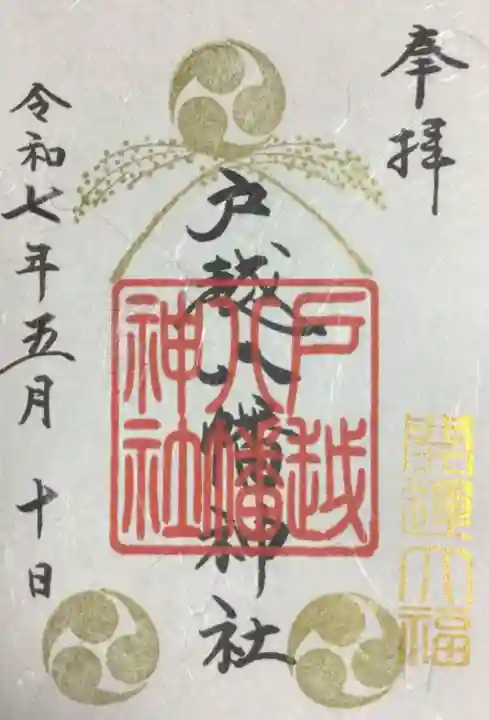 奉拝
開運大福
戸越八幡神社
戸越
八幡
神社
令和七年五月 十日